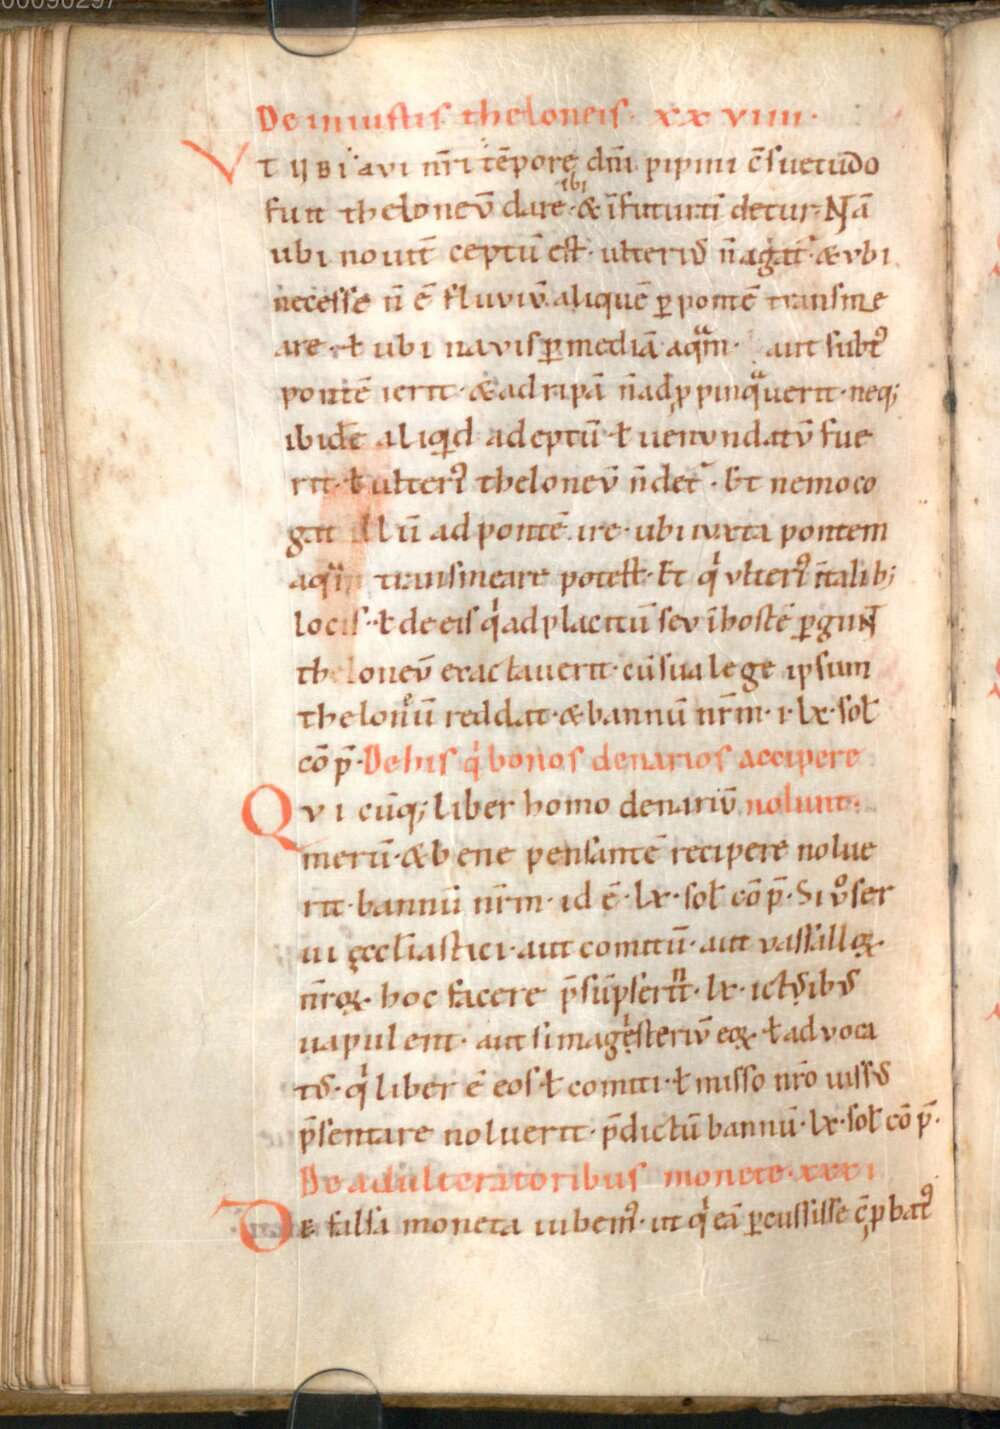 00090297
De iniustis theloneis · xxviiii ·
VT ubi avi nr̄i tēpore dn̄i pipini c̄suetudo
fuit theloneū dare · ibi & ī futurū detur · Nā
ubi nouit̄ ceptū est · ulteri᷒ n̄ agat᷑ · & ubi
necesse n̄ ē fluviū aliquē ꝑ pontē transme
are · ł ubi navis ꝑ mediā aquam · aut subt᷒
pontē ierit · & ad ripā n̄ adꝓpinquauerit · neq;
ibidē aliqid adeptū ł uenundatū fue
rit · ł ulteri᷒ theloneū n̄ det᷑ · Et nemo co
gat illū ad pontē ire · ubi iuxta pontem
aquā transmeare potest · Et qͥ ulteri᷒ ītalib;
locis · ł de eis qͥ ad placitū seu ī hostē ꝑgunt
theloneū exactauerit · cū sua lege ipsum
theloneū reddat · & bannū nr̄m · i · lx · soł
cō p̄ · De his qͥ bonos denarios accipere
Qui cūq; liber homo denariū nolunt ·
merū · & bene pensantē recipere nolue
rit · bannū nr̄m · id ē · lx · soł cō p̄ · Si uͦ ser
ui ęccłiastici · aut comitū · aut vassalloꝝ ·
nr̄oꝝ · hoc facere p̄sūpserint · lx · ictibus
uapulent · aut si magisteriū eoꝝ · ł advoca
tus · qͥ liber ē eos · ł comiti · ł misso nr̄o iussus
p̄sentare noluerit · p̄dictū bannū · lx · soł cō p̄ ·
De adulteratoribus monete · xxxi
De falsa moneta iubem᷒ · ut qͥ eā ꝑcussisse c̄ꝓbat᷒